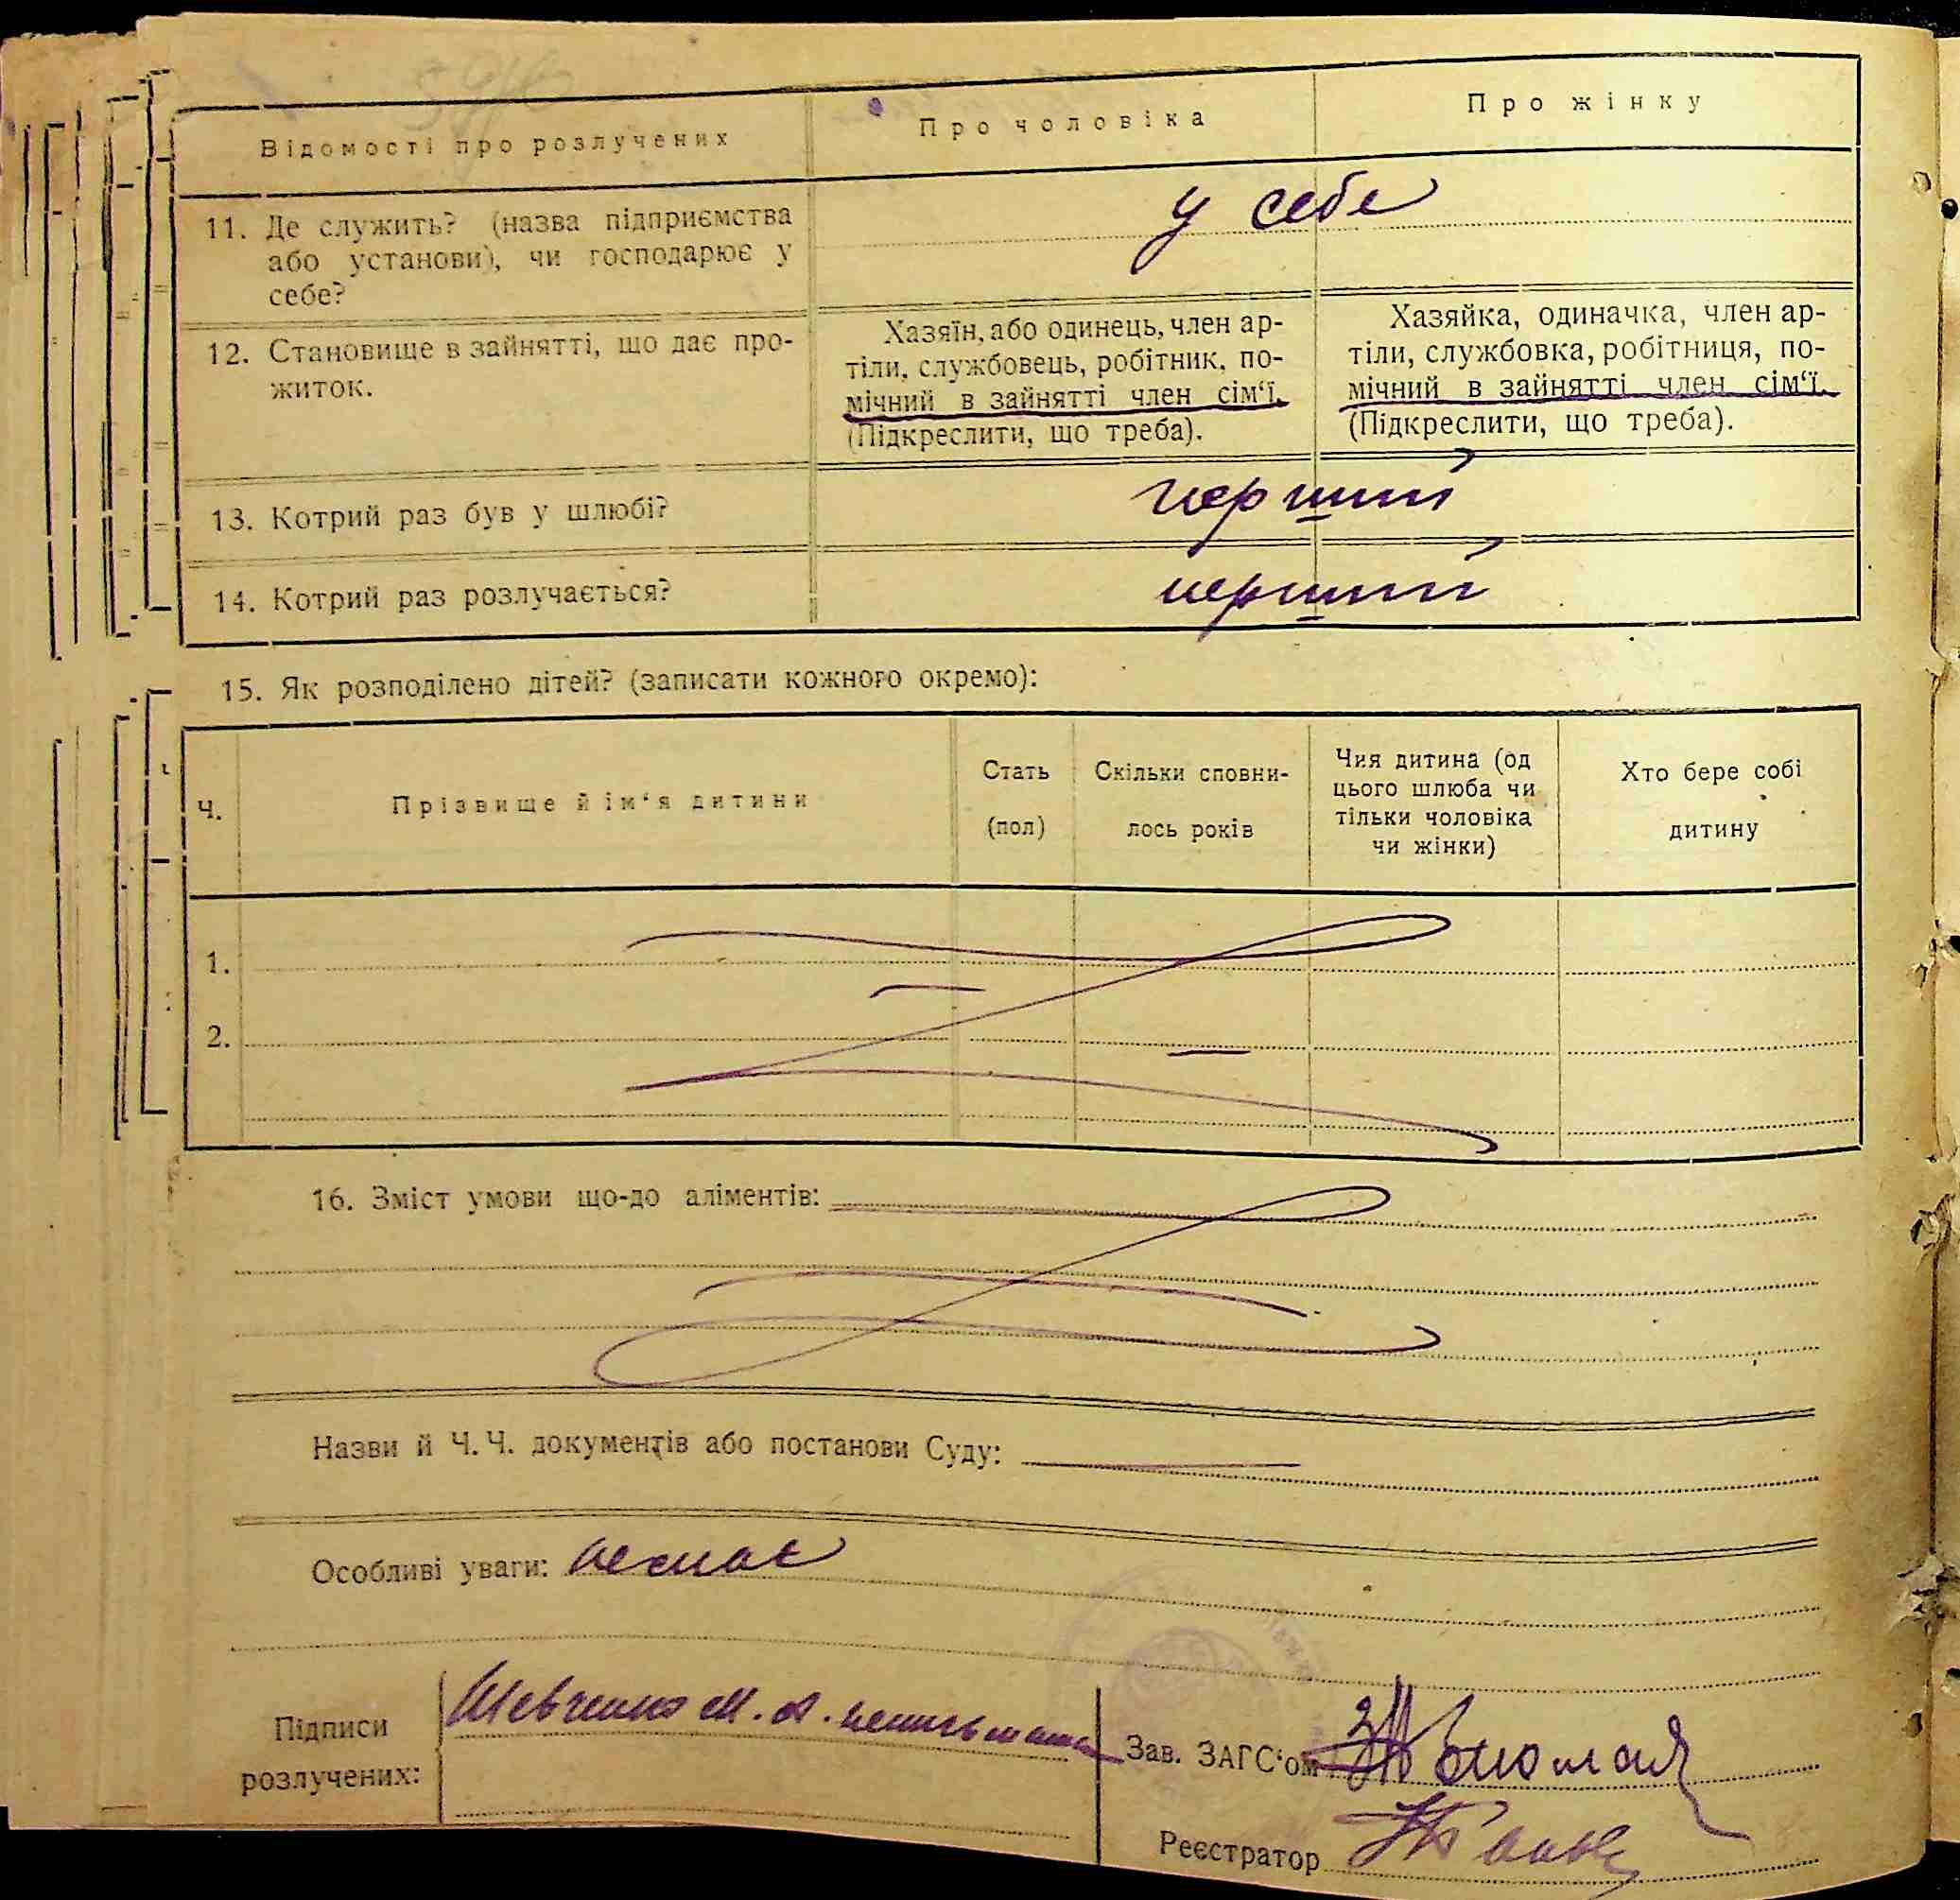 Відомості про розлучених
Про чоловіка
Про жінку
11. Де служить? (назва підприємства
або установи), чи господарює у
себе?
у себе
12. Становище в зайнятті, що дає про-
житок.
Хазяїн, або одинець, член ар-
тіли, службовець, робітник, по-
мічний в зайнятті член сім‘ї.
(Підкреслити, що треба).
Хазяйка, одиначка, член ар-
тіли, службовка, робітниця, по-
мічний в зайнятті член сім‘ї.
(Підкреслити, що треба).
13. Котрий раз був у шлюбі?
перший
14. Котрий раз розлучається?
перший
15. Як розподілено дітей? (записати кожного окремо):
Ч.
Прізвище й ім‘я дитини
Стать
(пол)
Скільки сповни-
лось років
Чия дитина (од
цього шлюба чи
тільки чоловіка
чи жінки)
Хто бере собі
дитину
1.
2.
16. Зміст умови що-до аліментів:
Назви й Ч. Ч. документів або постанови Суду:
Особливі уваги: немає
Підписи
розлучених:
Шевченко М. А.
Зав. ЗАГС‘ом
Реєстратор